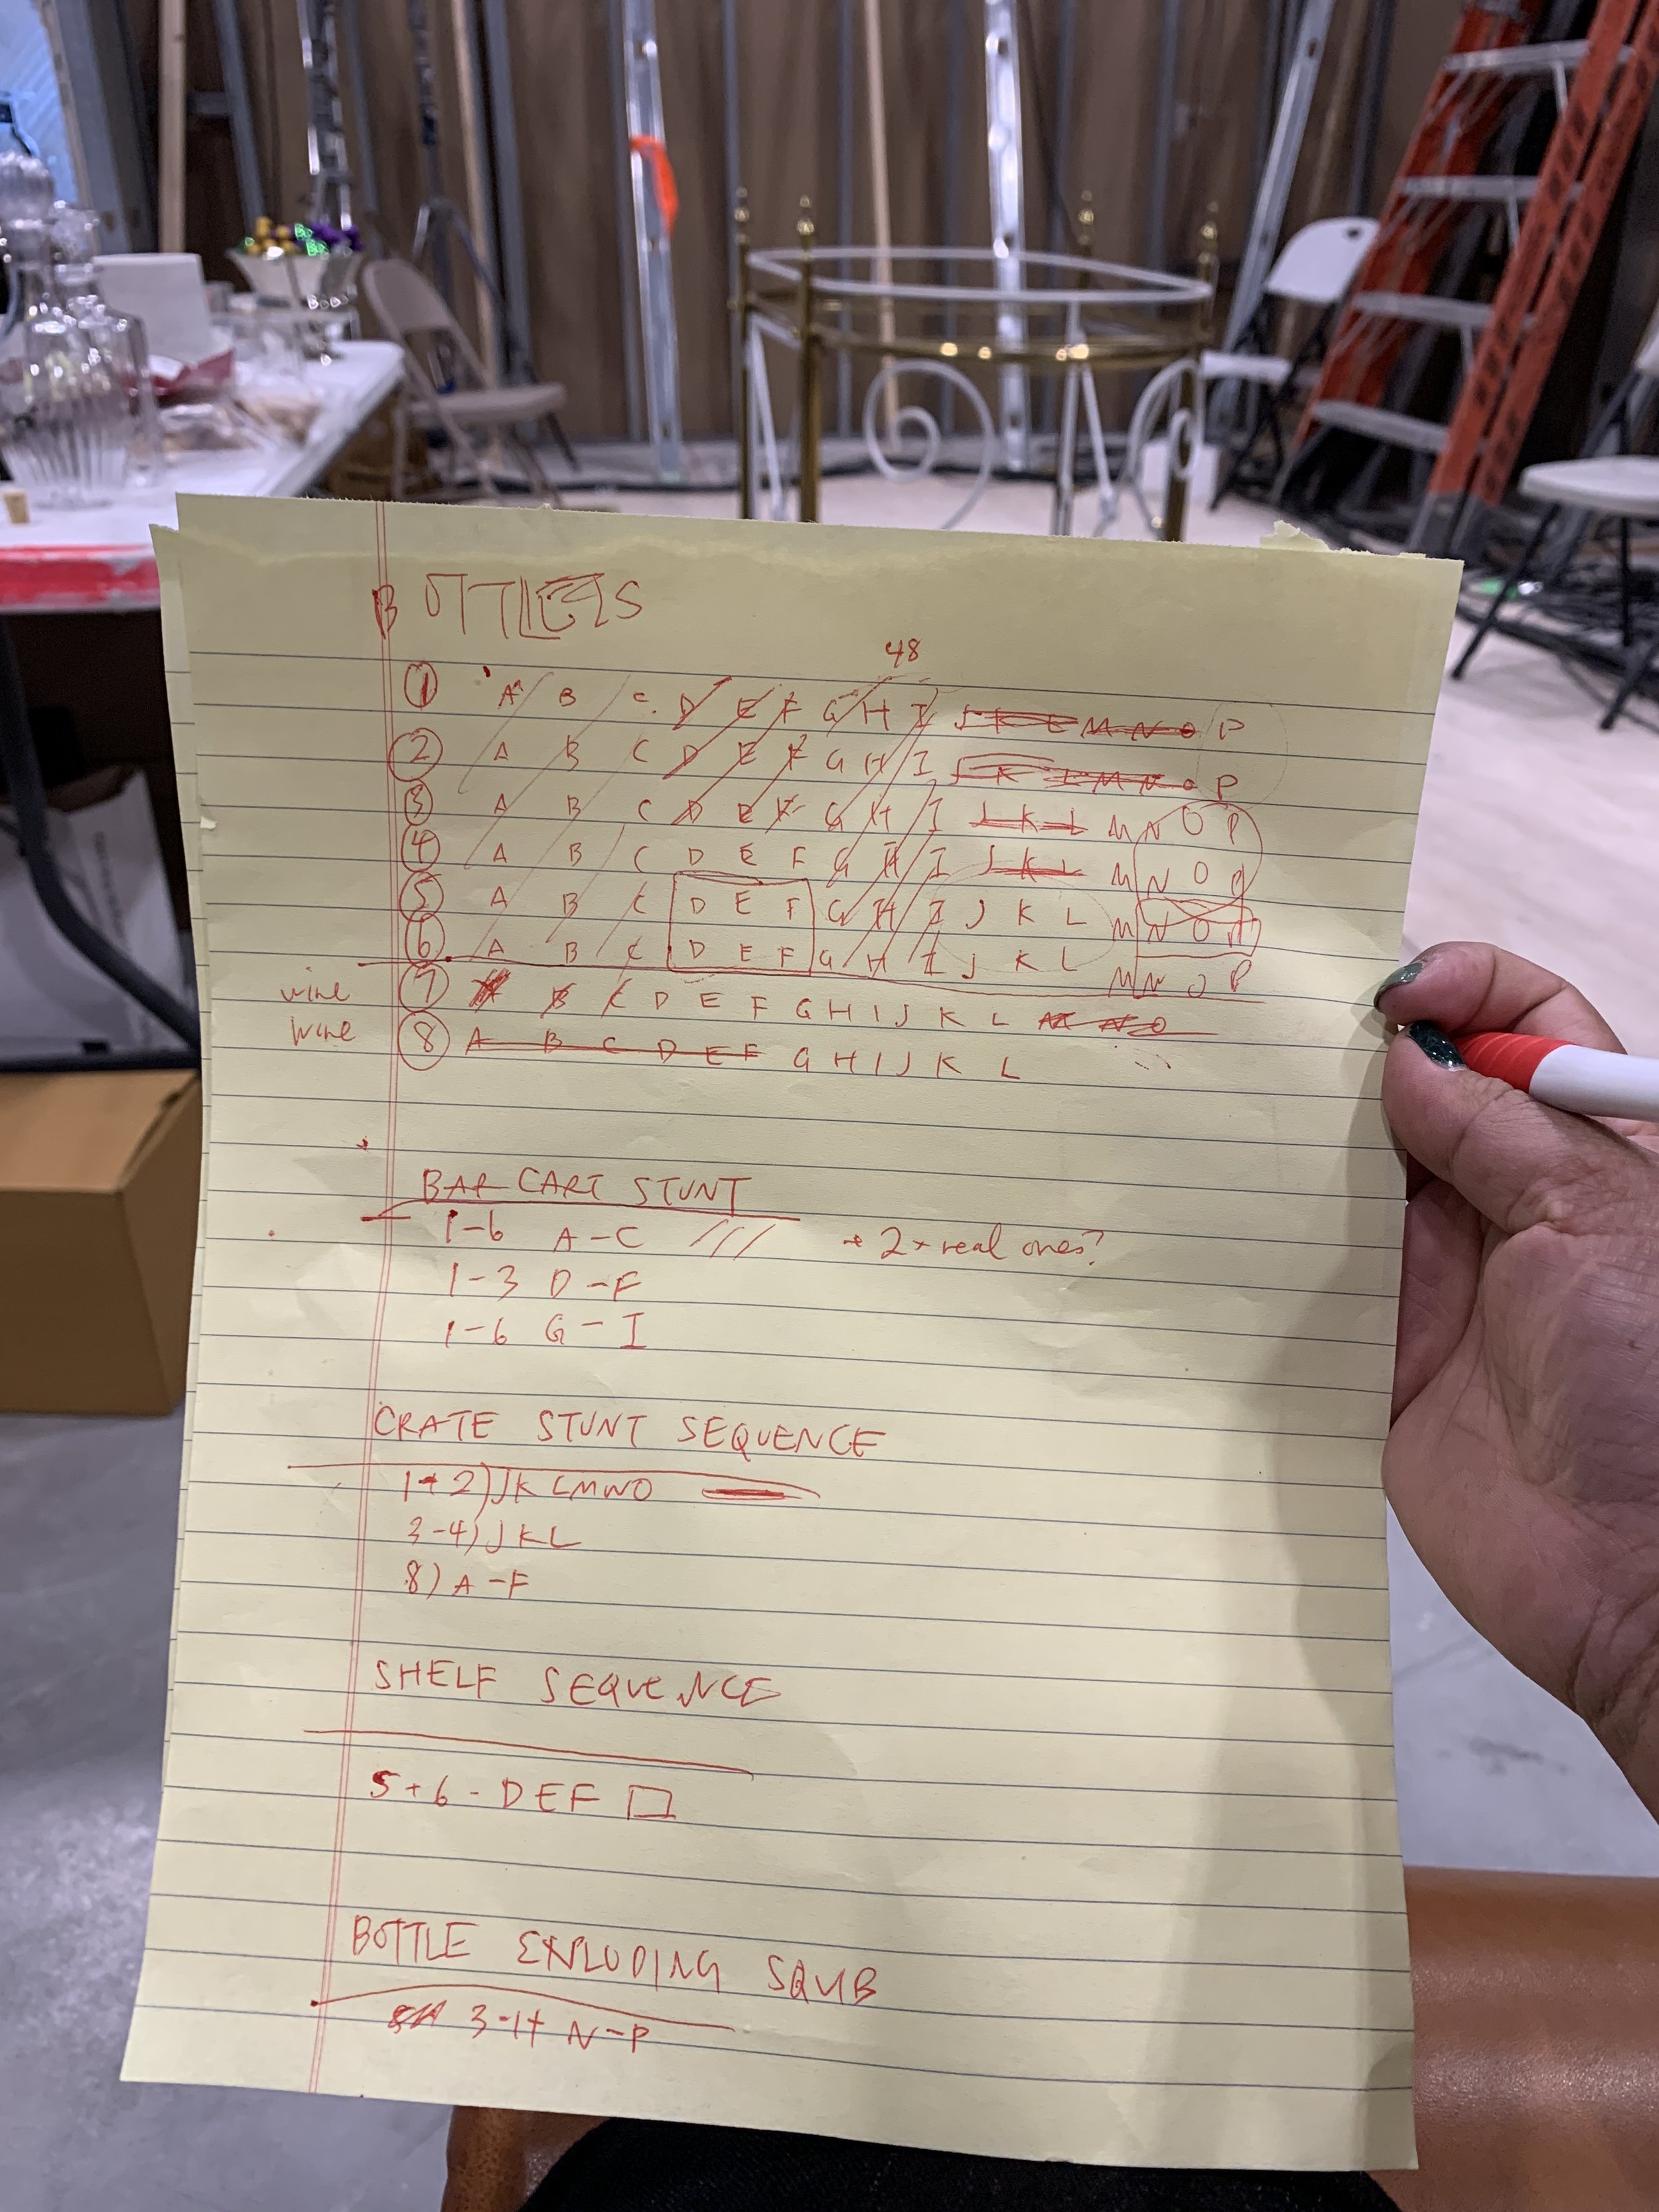 BOTTLES
48
① A B C D E F G H I J K L M N O P
② A B C D E F G H I J K L M N O P
③ A B C D E F G H I J K L M N O P
④ A B C D E F G H I J K L M N O P
⑤ A B C D E F G H I J K L M N O P
⑥ A B C D E F G H I J K L M N O P
wine ⑦ A B C D E F G H I J K L M N O
wine ⑧ A B C D E F G H I J K L
BAR CART STUNT
1-6 A-C /// + 2 + real ones?
1-3 D-F
1-6 G-I
CRATE STUNT SEQUENCE
1+2) JKLMNO
3-4) JKL
8) A-F
SHELF SEQUENCE
5+6 - DEF □
BOTTLE EXPLODING SQUB
3-4 N-P